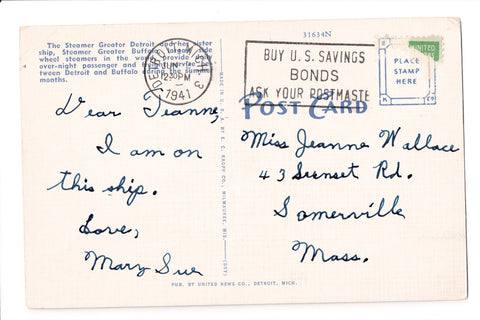 The Steamer Greater Detroit and her sister
ship, Steamer Greater Buffalo, largest side
wheel steamers in the world, provide daily
over-night passenger and freight service be-
tween Detroit and Buffalo during the summer
months.
31634N
DETROIT, MICH. 3
JUN
12 30 PM
1941
BUY U.S. SAVINGS
BONDS
ASK YOUR POSTMASTE
UNITED
PLACE
STAMP
HERE
POST CARD
Dear Jeanne,
I am on
this ship.
Love,
Mary Sue
MADE IN U.S.A. BY E. C. KROPP CO., MILWAUKEE, WIS.
Miss Jeanne Wallace
43 Sunset Rd.
Somerville
Mass.
PUB. BY UNITED NEWS CO., DETROIT, MICH.